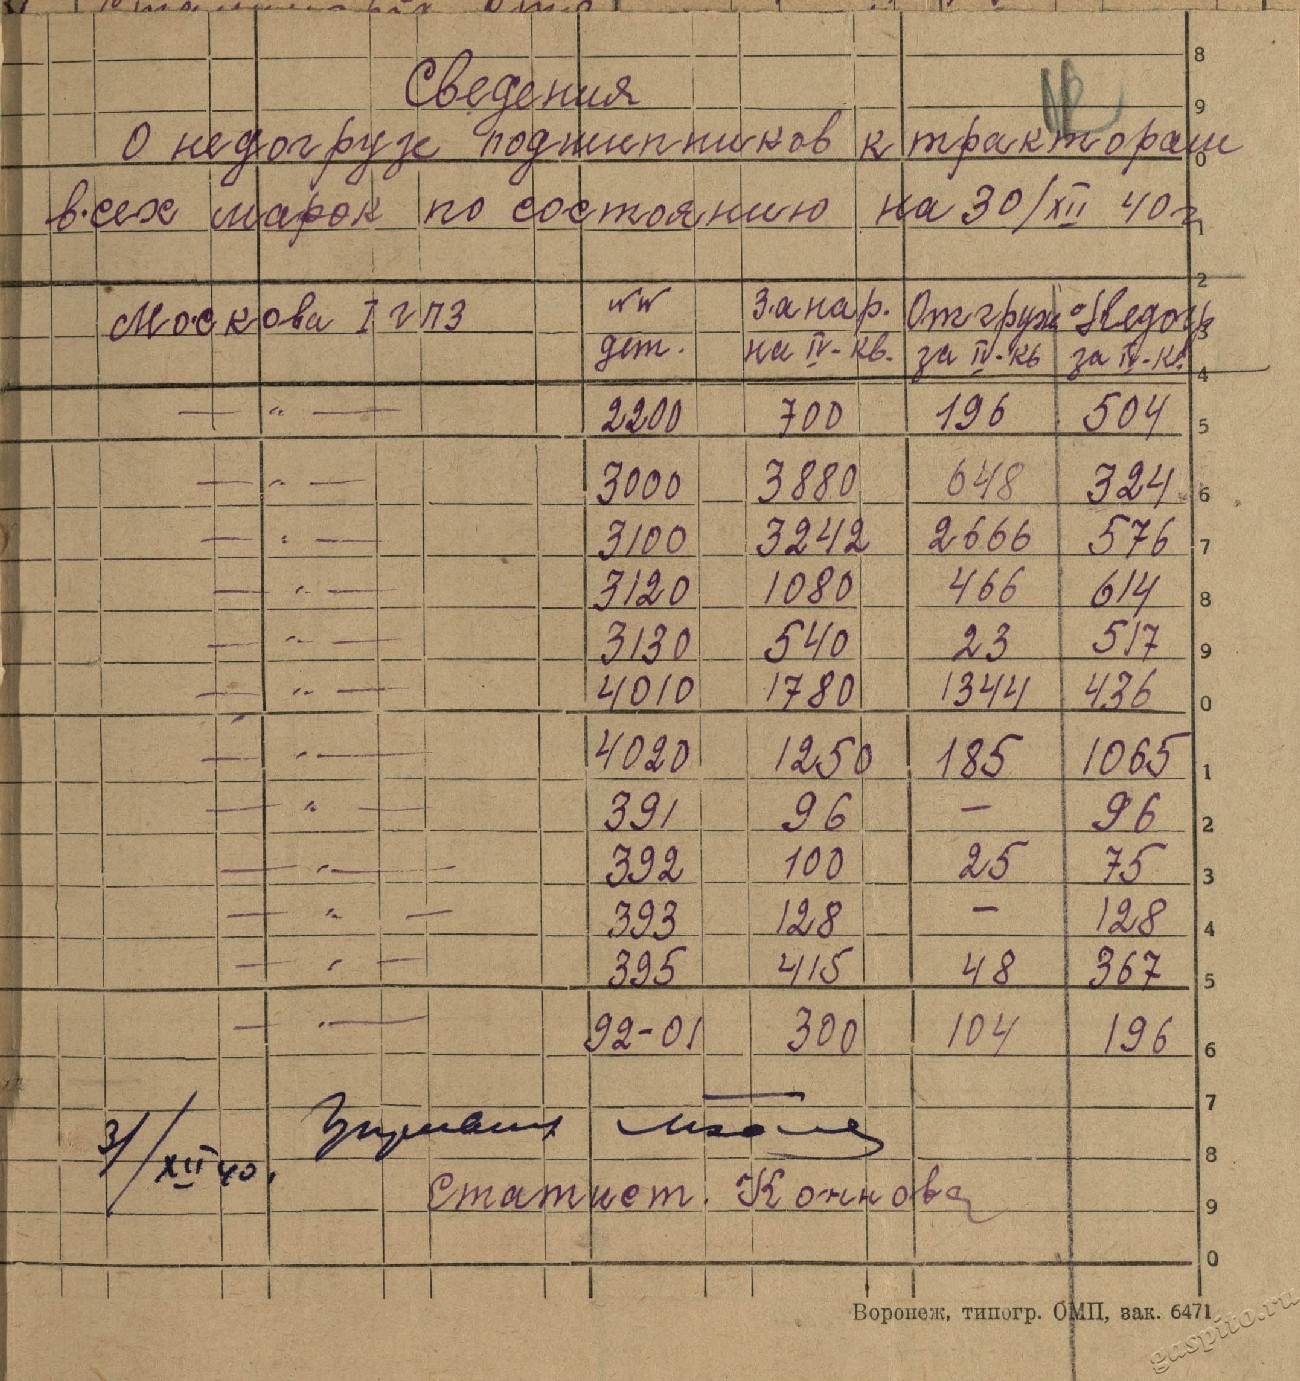 Сведения
О недогрузе подшипников к тракторам
всех марок по состоянию на 30/XII 40 г
Москова I гпз №№ дет. За нар. на IV-кв. Отгруж за IV-кв Недогр за IV-кв.
— " — 2200 700 196 504
— " — 3000 3880 648 324
— " — 3100 3242 2666 576
— " — 3120 1080 466 614
— " — 3130 540 23 517
— " — 4010 1780 1344 436
— " — 4020 1250 185 1065
— " — 391 96 – 96
— " — 392 100 25 75
— " — 393 128 – 128
— " — 395 415 48 367
— " — 92-01 300 104 196
31/XII 40.
Статист. Коннова
Воронеж, типогр. ОМП, зак. 6471
gaspito.ru
8
9
0
1
2
3
4
5
6
7
8
9
0
1
2
3
4
5
6
7
8
9
0